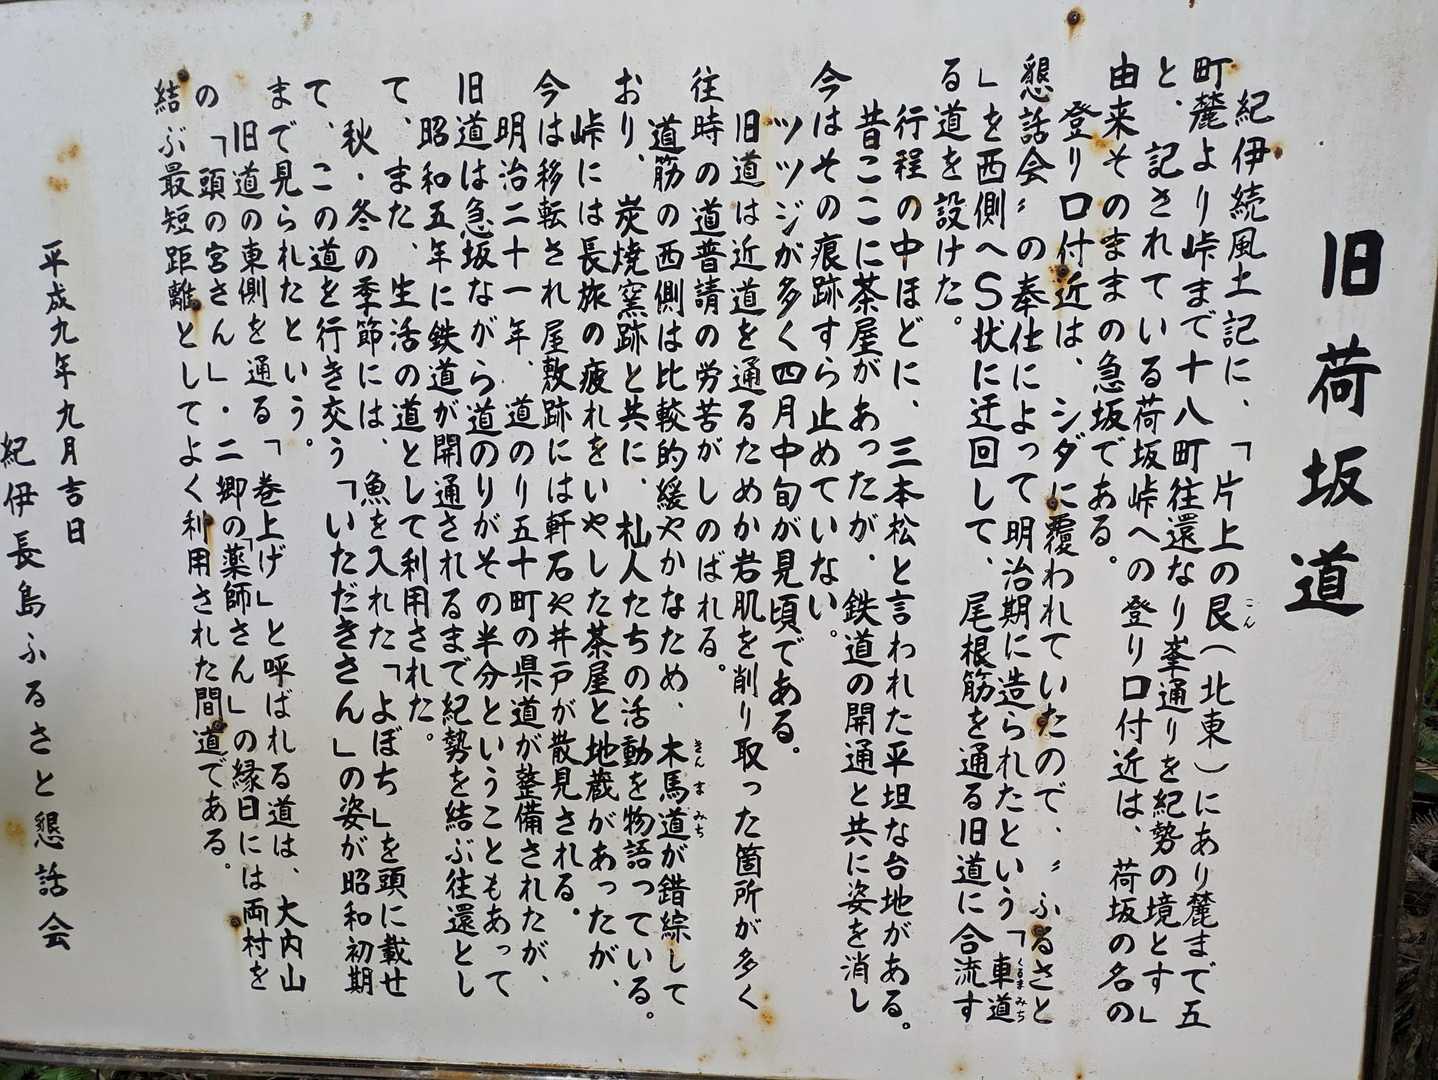 旧荷坂道
紀伊続風土記に、「片上の艮(北東)にあり麓まで五
町麓より峠まで十八町往還なり峯通りを紀勢の境とす」
と、記されている荷坂峠への登り口付近は、荷坂の名の
由来そのままの急坂である。
登り口付近は、シダに覆われていたので、〝ふるさと
懇話会〟の奉仕によって明治期に造られたという「車道
くるまみち
」を西側へS状に迂回して、尾根筋を通る旧道に合流す
る道を設けた。
行程の中ほどに、三本松と言われた平坦な台地がある。
昔ここに茶屋があったが、鉄道の開通と共に姿を消し
今はその痕跡すら止めていない。
ツツジが多く四月中旬が見頃である。
旧道は近道を通るためか岩肌を削り取った箇所が多く
往時の道普請の労苦がしのばれる。
道筋の西側は比較的緩やかなため、木馬道が錯綜して
きんまみち
おり、炭焼窯跡と共に、杣人たちの活動を物語っている。
峠には長旅の疲れをいやした茶屋と地蔵があったが、
今は移転され屋敷跡には軒石や井戸が散見される。
明治二十一年、道のり五十町の県道が整備されたが、
旧道は急坂ながら道のりがその半分ということもあって
昭和五年に鉄道が開通されるまで紀勢を結ぶ往還とし
て、また、生活の道として利用された。
秋・冬の季節には、魚を入れた「よぼち」を頭に載せ
て、この道を行き交う「いただきさん」の姿が昭和初期
まで見られたという。
旧道の東側を通る「巻上げ」と呼ばれる道は、大内山
の「頭の宮さん」・二郷の「薬師さん」の縁日には両村を
結ぶ最短距離としてよく利用された間道である。
平成九年九月吉日
紀伊長島ふるさと懇話会